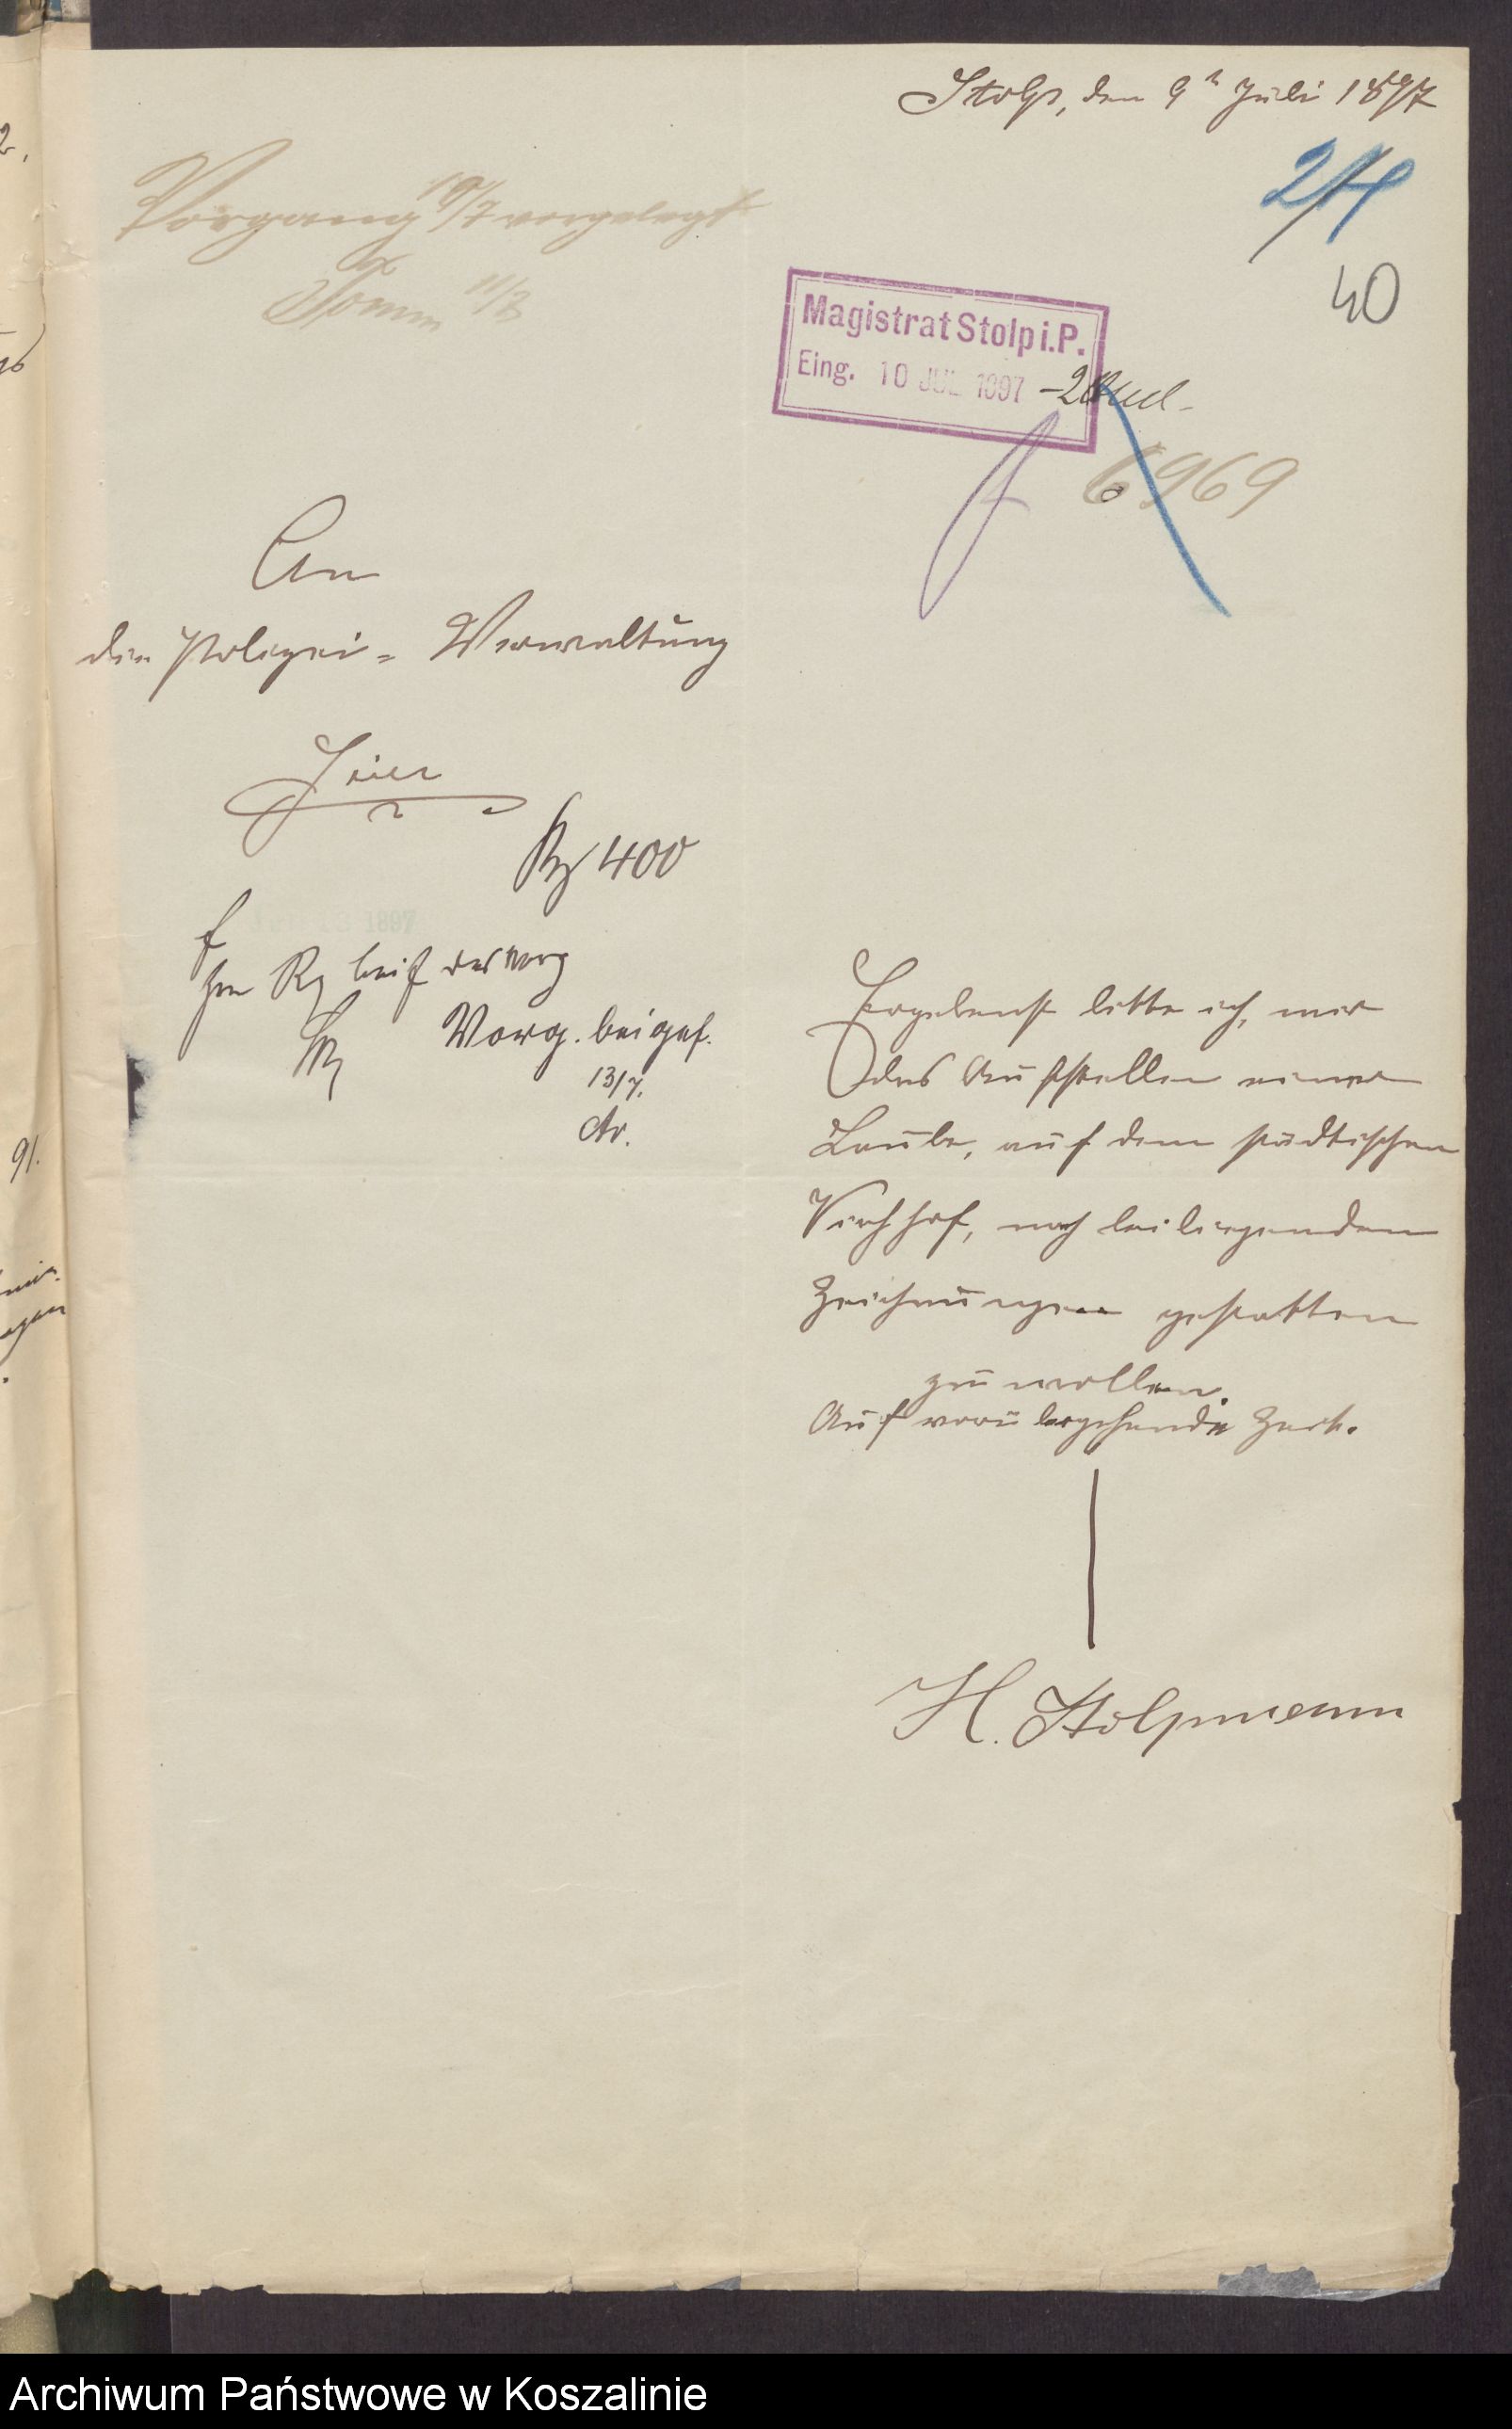 Stolp, den 9ⁿ Juli 1897
Vorgang 10/7 vorgelegt
11/7
40
Magistrat Stolp i. P.
Eing. 10 JUL 1897 - 2 Anl -
6969
An
die Polizei = Verwaltung
Hier
400
1897
Vorg. beigef.
13/7.
Ergebenst bitte ich, mir
das Aufstellen einer
Laube, auf dem städtischen
Kirchhof, nach beiliegenden
Zeichnungen gestatten
zu wollen.
Auf vorübergehende Zeit.
H. Stolpmann
91.
Archiwum Państwowe w Koszalinie